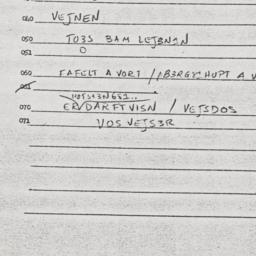 040 VEJNEN
050 TO3S BAM LEJBNIN
051 O
060 FAFELT A VORT / IBERGYHUPT A V
061
070 ER/DARFT VISN / VEJSDOS
071 VOS VEJS3R